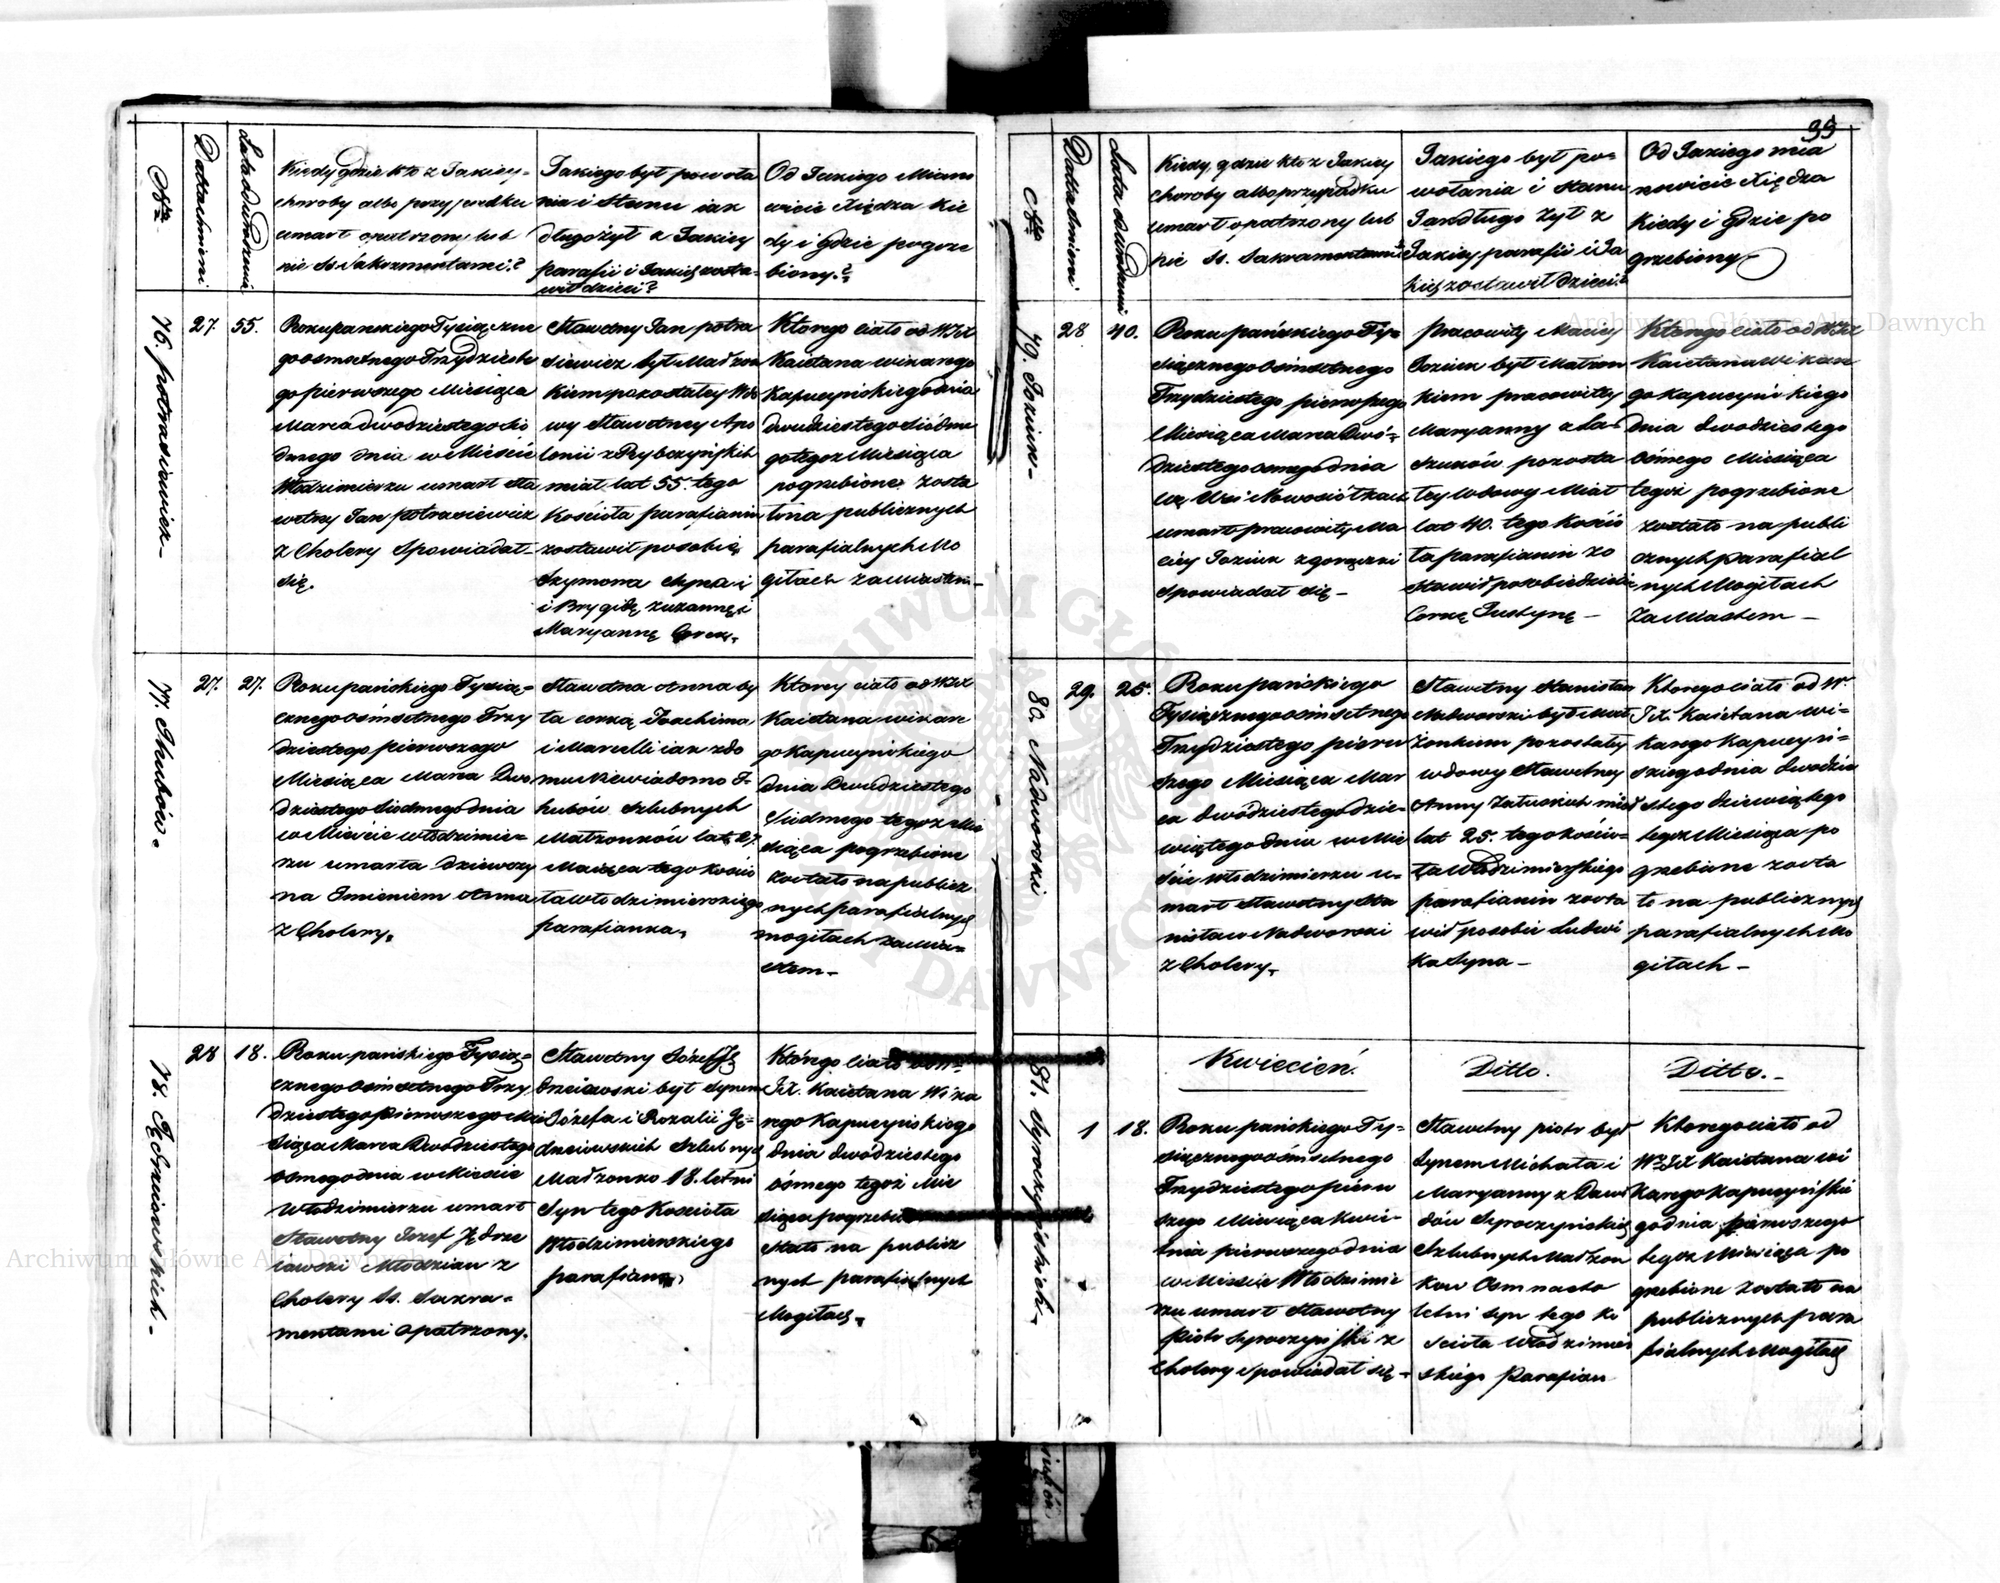 Nro
Data dnieni
Lata od urodzenia
Kiedy gdzie kto z Jakiey
choroby albo przypadku
umarł opatrzony lub
nie ss. Sakramentami?
Jakiego był powoła
nia i Stanu iak
długo żył z Jakiey
parafii i Jakich zosta-
wił dzieci?
Od Jakiego Miano
wicie Xiędza kie
dy i gdzie pogrze
biony.?
76. potrasiewicz
27.
55.
Roku pańskiego Tysiączne
go osmsetnego Trzydzieste
go pierwszego Miesiąca
Marca dwodziestego sió
dmego dnia w Mieście
Włodzimierzu umarł sła
wetny Jan potrasiewicz
z Cholery Spowiadał
się.
Sławetny Jan potra
siewicz był Małżon
kiem pozostałey Wdo
wy Sławetney Apo
lonii z Rybczyńskich
miał lat 55. tego
Kościoła parafianin
zostawił po sobie
Szymona syna i
i Brygidę zuzannę i
Maryannę Corek.
Ktorego ciało od WJX
Kaietana wikarego
Kapucyńskiego dnia
dwudziestego siódme
go tegoz Miesiąca
pogrzebione zosta
ło na publicznych
parafialnych Mo
giłach za Miastem
77.
27.
27.
Roku pańskiego Tysią-
cznego osmsetnego Trzy
dziestego pierwszego
Miesiąca Marca Dwo
dziestego siedmego dnia
w Mieście włodzimie-
rzu umarła dziewczy
na Imieniem Anna
z Cholery.
Sławetna Anna by
ła corką Joachima,
i Marcelli iak zdo
mu Niewiadomo J-
hubów Szlubnych
Małżonków lat 27.
Maiąca tego kości
ła włodzimierskiego
parafianka.
Ktorey ciało od WJX
Kaietana wikare
go Kapucyńskiego
Dnia Dwudziestego
Siedmego tegoż Mie
siąca pogrzebione
zostało na publicz
nych parafialnych
mogiłach za Mia-
stem
78. Jędrzeiowskich
28
18.
Roku pańskiego Tysią-
cznego osmsetnego Trzy
dziestego Pierwszego Mie
siąca Marca Dwodziestego
osmego dnia w Mieście
Włodzimierzu umarł
Sławetny Jozef Jędrze
iowski Młodzian z
Cholery ss. Sakra-
mentami opatrzony.
Sławetny Józef Ję
drzeiowski był synem
Józefa i Rozalii Ję-
drzeiowskich Szlubnych
Małżonków 18. letni
Syn tego Kościoła
Włodzimierskiego
parafianin
Którego ciało od W-
JX. Kaietana Wika
rego Kapucyńskiego
dnia dwodziestego
osmego tegoż Mie
siąca pogrzebione
stało na publicz
nych parafialnych
Mogiłach.
39
Nro
Data dnieni
Lata od urodzenia
Kiedy, gdzie kto z Jakiey
choroby albo przypadku
umarł opatrzony lub
nie ss. Sakramentami
Jakiego był po-
wołania i stanu
Jandługo żył z
Jakiey parafii i Ja
kich zostawił dzieci?
Od Jakiego mia
nowicie Xiędza
Kiedy i Gdzie po
grzebiony
79. Joziuk
28
40.
Roku pańskiego Ty-
siącznego osmsetnego
Trzydziestego pierwszego
Miesiąca Marca Dwó-
dziestego osmego dnia
we Wsi Nowosiołkach
umarł pracowity Ma
ciey Joziuk z gorączki
Spowiadał się
Pracowity Maciey
Joziuk był Małżon
kiem pracowitey
Maryanny z
pozosta
łey wdowy Miał
lat 40. tego Kości
ła parafianin zo
stawił po sobie dzieci
Corkę Justynę
Ktorego ciało od WJX
Kaietana Wikare
go Kapucyńskiego
Dnia dwodziestego
Osmego Miesiąca
tegoż pogrzebione
zostało na publi
cznych parafial
nych Mogiłach
Za Miastem
80. Nadworski
29.
25.
Roku pańskiego
Tysiącznego osmsetnego
Trzydziestego pierw
szego Miesiąca Mar
ca dwódziestego dzie-
wiątego dnia w Mie
ście włodzimierzu u-
marł sławetny Sta
nisław Nadworski
z Cholery.
Sławetny Stanisław
Nadworski był Mał
żonkiem pozostałey
wdowy Sławetney
Anny Załuskich miał
lat 25. tego kościo-
ła Włodzimierskiego
parafianin zosta
wił po sobie Ludwi
ka syna
Ktorego ciało od W.
JX. Kaietana Wi-
karego Kapucyń-
skiego dnia dwodzie
stego dziewiątego
tegoz Miesiąca po
grzebione zosta
ło na publicznych
parafialnych Mo
giłach
81. Syroczyńskich
Kwiecień.
Ditto.
Ditto.
1
18.
Roku pańskiego Ty-
siącznego osmsetnego
Trzydziestego pierw
szego Miesiąca Kwie-
tnia pierwszego dnia
w Mieście Włodzimie
rzu umarł sławetny
Piotr Syroczyński z
Cholery spowiadał się
Sławetny piotr był
synem Michała i
Maryanny z Dawi
dów Syroczyńskich
Szlubnych Małżon
kow Osmnasto
letni syn tego ko
scioła włodzimier
skiego Parafian
Ktorego ciało od
WJX Kaietana wi
karego Kapucyńskie
go dnia pierwszego
tegoz Miesiąca po
grzebione zostało na
publicznych para
fialnych Mogiłach
Archiwum Główne Akt Dawnych
Archiwum Główne Akt Dawnych
ARCHIWUM GŁÓWNE AKT DAWNYCH